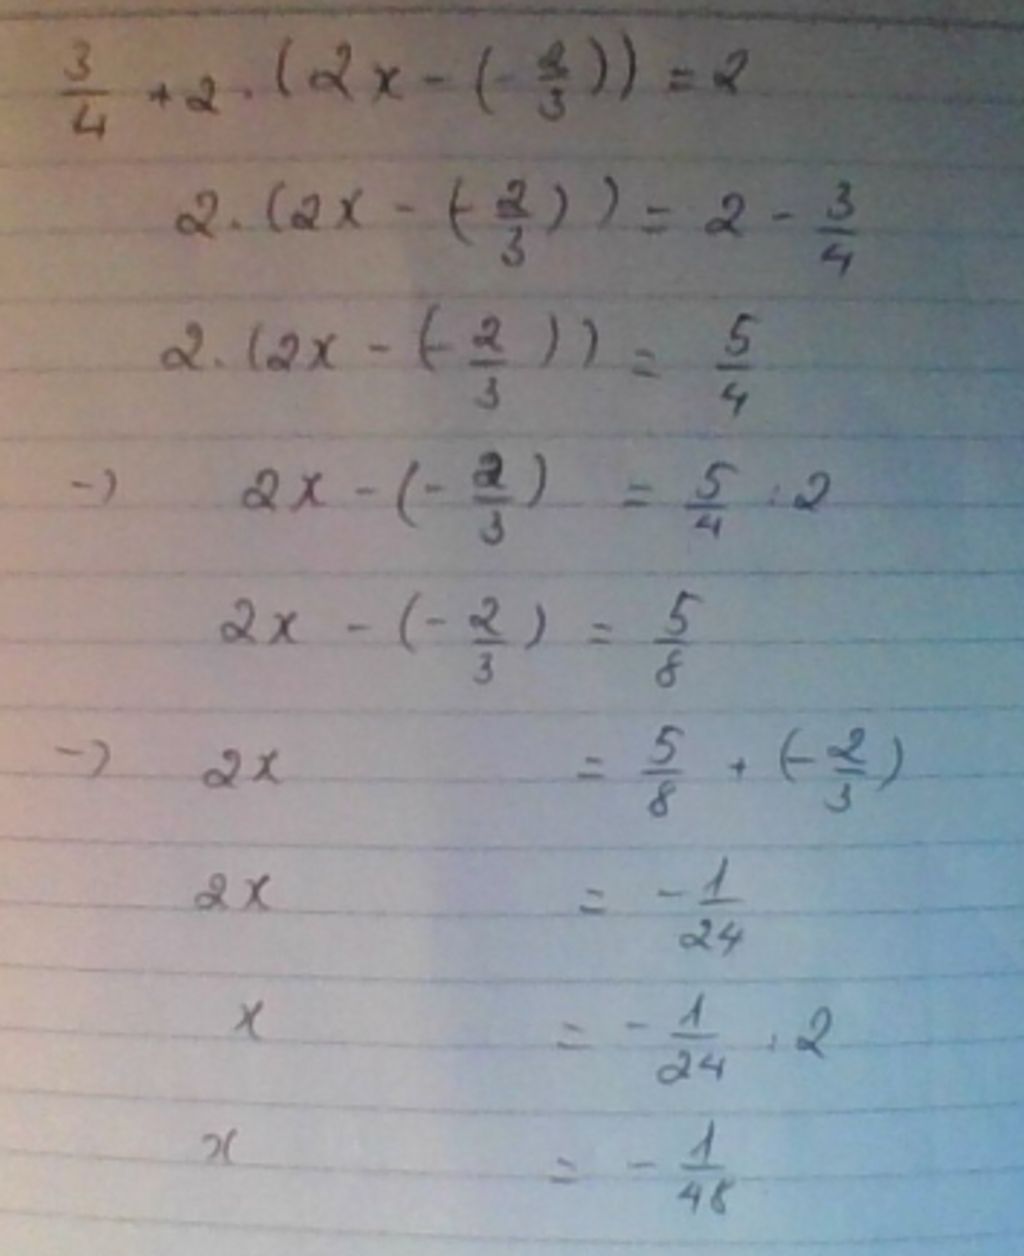 3/4 + 2 . (2x - (- 2/3)) = 2
2. (2x - (- 2/3)) = 2 - 3/4
2. (2x - (- 2/3)) = 5/4
-) 2x - (- 2/3) = 5/4 : 2
2x - (- 2/3) = 5/8
-) 2x = 5/8 + (- 2/3)
2x = - 1/24
x = - 1/24 : 2
x = - 1/48